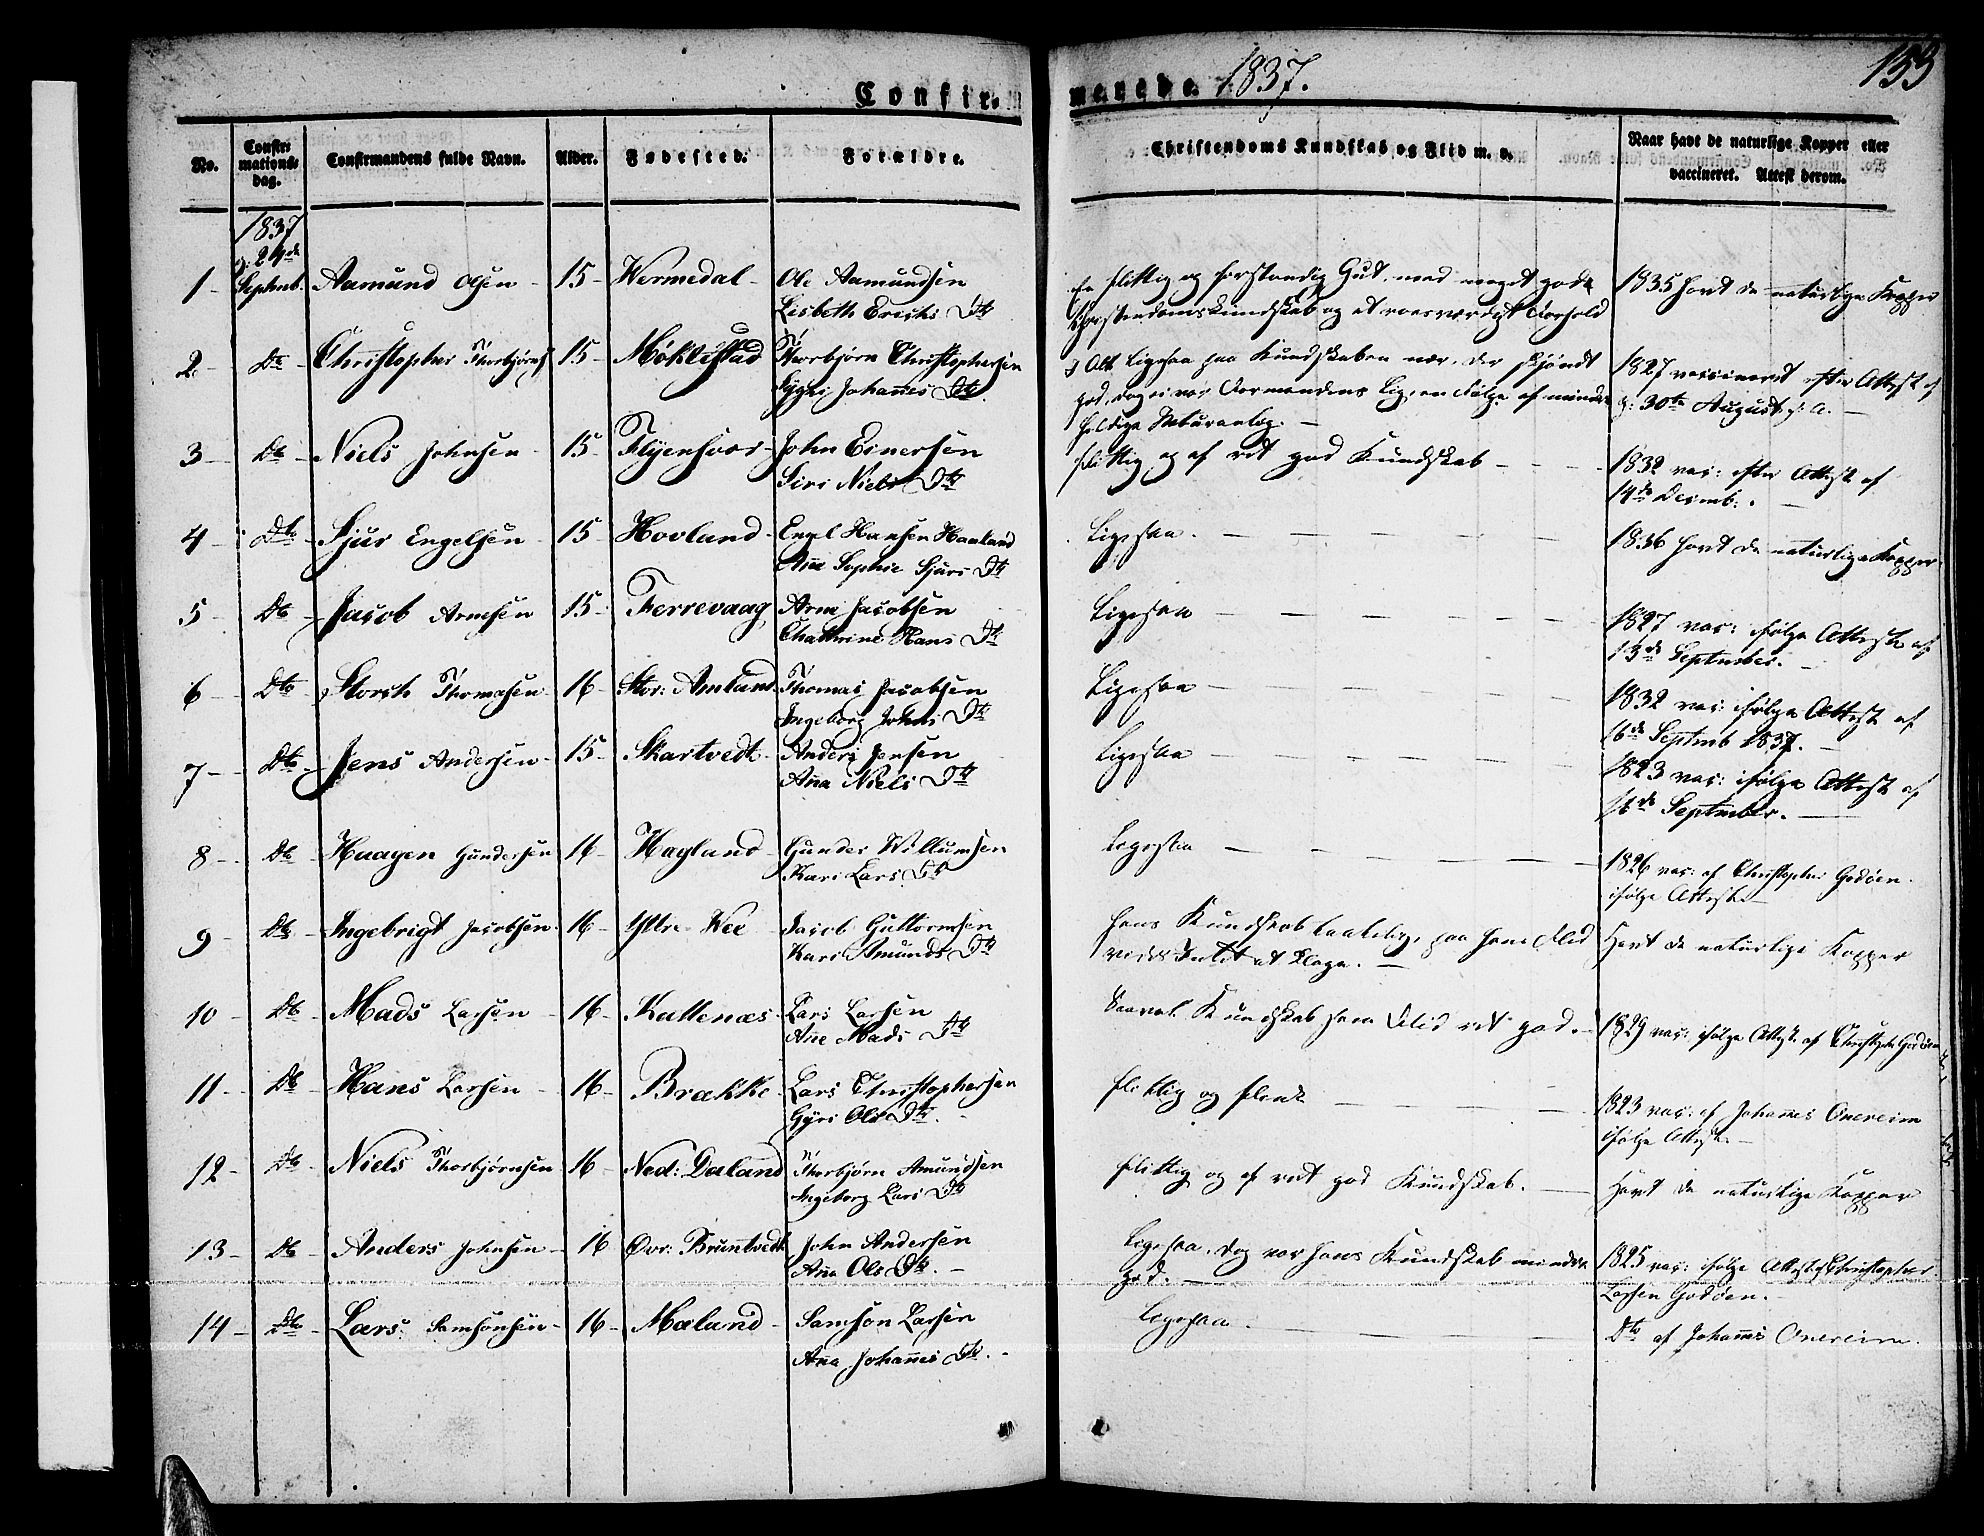 Confir-
marede. 1837.
133
No.
Confir-
mations-
dag.
Confirmandens fulde Navn.
Alder.
Fødested.
Forældre.
Christendoms Kundskab og Flid m. v.
Naar havt de naturlige Kopper eller
vaccineret. Attest derom.
1837
d: 24de
1 - Septmb. Aamund Olsen - 15 - Wermedal - Ole Aamundsen
Lisbeth Erichs Dtr
En flittig og forstandig Gut, med meget gode
Christendomskundskab og et roesværdigt Forhold
1835 havt de naturlige Kopper
2 - Do - Christopher Thorbjørns 15 - Möklestad Thorbjørn Christophersen
Johannes Dtr
I Alt Ligesaa paa Kundskaben nær, der skjøndt
god, dog ei var Formandens Lig, en Følge af mindre
heldige Naturanlæg. -
1827 vaccineret efter Attest af
d: 30te August s: A. -
3 - Do - Niels Johnsen - 15 - John Einersen
Siri Niels Dtr
flittig og af ret god Kundskab - - -
1832 vac: efter Attest af
14de Decemb: . -
4 - Do - Sjur Engelsen 15 Hovland - Engel Hansen Haaland
Ane Sophie Sjurs Dtr
Ligesaa. - - - -
1836 havt de naturlige Kopper
5 - Do - Jacob Arnesen 15 - Ferrevaag Arne Jacobsen
Chathrine Hans Dtr
Ligesaa - - - -
1827 vac: ifølge Attest af
13de September. -
6 - Do - Storch Thomasen 16 - Stor: Amland Thomas Jacobsen
Ingeborg Johns Dtr
Ligesaa - - - -
1832 vac: ifølge Attest af
16de Septmb 1837. -
7 - Do - Jens Andersen - 15 - Skartvedt - Anders Jensen
Ana Niels Dtr
Ligesaa - - - -
1823 vac: ifølge Attest af
16de September. -
8 - Do - Haagen Gundersen 16 - Hagland - Gunder Willumsen
Kari Lars Dtr
Ligesaa - - - -
1826 vac: af Christopher Godøen
ifølge Attest. -
9 - Do - Ingebrigt Jacobsen - 16 - Yttre Wee Jacob Guttormsen
Kari Amunds Dtr
Hans Kundskab taalelig, paa hans Flid
vides Intet at klage. -
Havt de naturlige Kopper
10 - Do - Mads Larsen - 16 - Kallenæs - Lars Larsen
Ane Mads Dtr
Saavel Kundskab som Flid ret god. -
1829 vac: ifølge Attest af Christoph Godøen
11 - Do - Hans Larsen - 16 - Brække - Lars Christophersen
Gyri Ols Dtr. -
flittig og flink - - -
1823 vac: af Johannes Onereim
ifølge Attest. -
12 - Do - Niels Thorbjørnsen 16 - Ned: Daland Thorbjørn Amundsen
Ingeborg Lars Dtr
flittig og af ret god Kundskab. -
Havt de naturlige Kopper
13 - Do - Anders Johnsen - 16 Øvr: Bruntvedt John Andersen
Ana Ols Dtr. -
Ligesaa, dog var hans Kundskab mindre
god. -
1825 vac: ifølge Attest af Christopher
Larsen Godøen. -
14 - Do - Lars Samsonsen - 16 - Mæland - Samson Larsen
Ana Johannes Dtr. -
Ligesaa. - - - -
Do af Johannes Onereim.